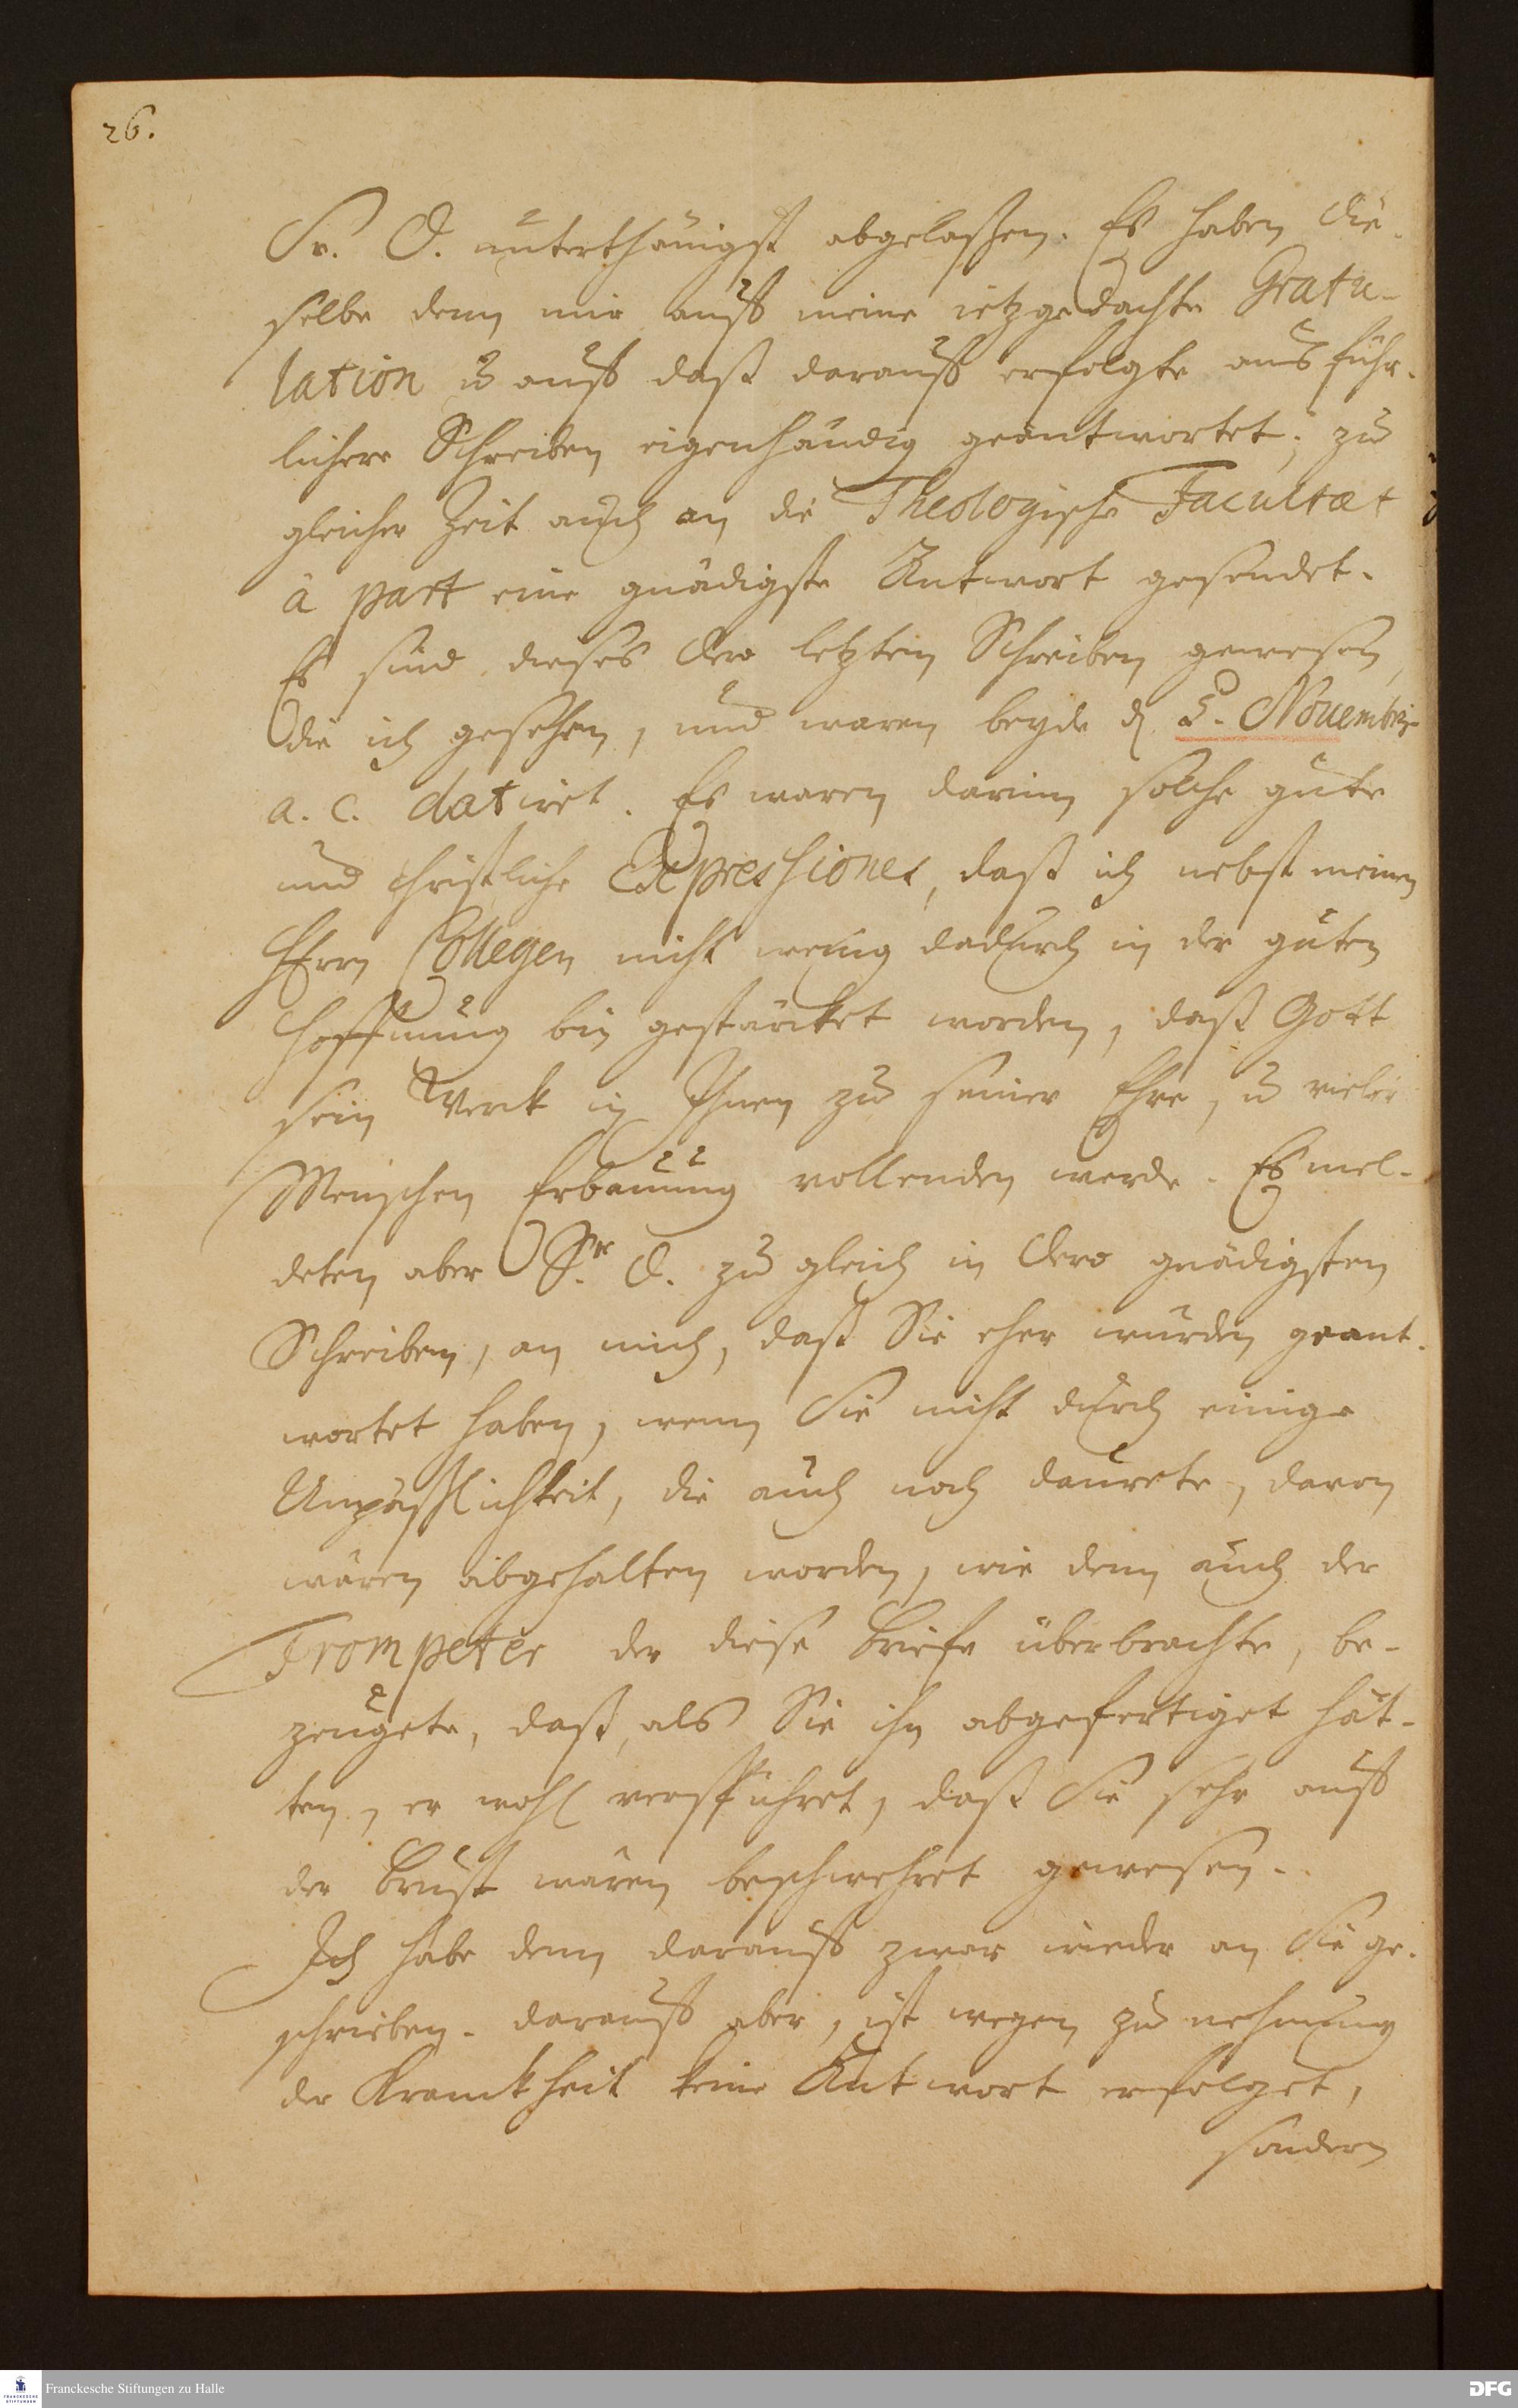 26.
Sr. D. unterthänigst abgelaßen. Es haben die-
selbe denn mir auff meine ietzgedachte Gratu-
lation u auff daß darauff erfolgte ausführ-
lichere Schreiben eigenhändig geantwortet; zu
gleicher Zeit auch an die Theologische Facultæt
à part eine gnädigste Antwort gesendet.
Es sind dieses Dero letztern Schreiben gewesen,
die ich gesehen, und waren beyde d. 5. Novembris
a. c. datiret. Es waren darinn solche gute
und christliche Expressiones, daß ich nebst meinen
Herrn Collegen nicht wenig dadurch in der guten
Hoffnung bin gestärcket worden, daß Gott
sein Werck in Ihnen zu seiner Ehre, u vieler
Menschen Erbauung vollenden werde. Es mel-
deten aber Sr. D. zu gleich in Dero gnädigsten
Schreiben, an mich, daß Sie eher würden geant-
wortet haben, wenn Sie nicht durch einige
Unpäßlichkeit, die auch noch daurete, davon
wären abgehalten worden, wie denn auch der
Trompeter der diese Briefe überbrachte, be-
zeugete, daß, als Sie ihn abgefertiget hät-
ten, er wohl verspühret, daß Sie sehr auff
der Brust wären beschwehret gewesen.
Ich habe denn darauff zwar wieder an Sie ge-
schrieben. darauff aber, ist wegen zu nehmung
der Kranckheit keine Antwort erfolget,
sondern
Franckesche Stiftungen zu Halle
FRANCKESCHE STIFTUNGEN
DFG